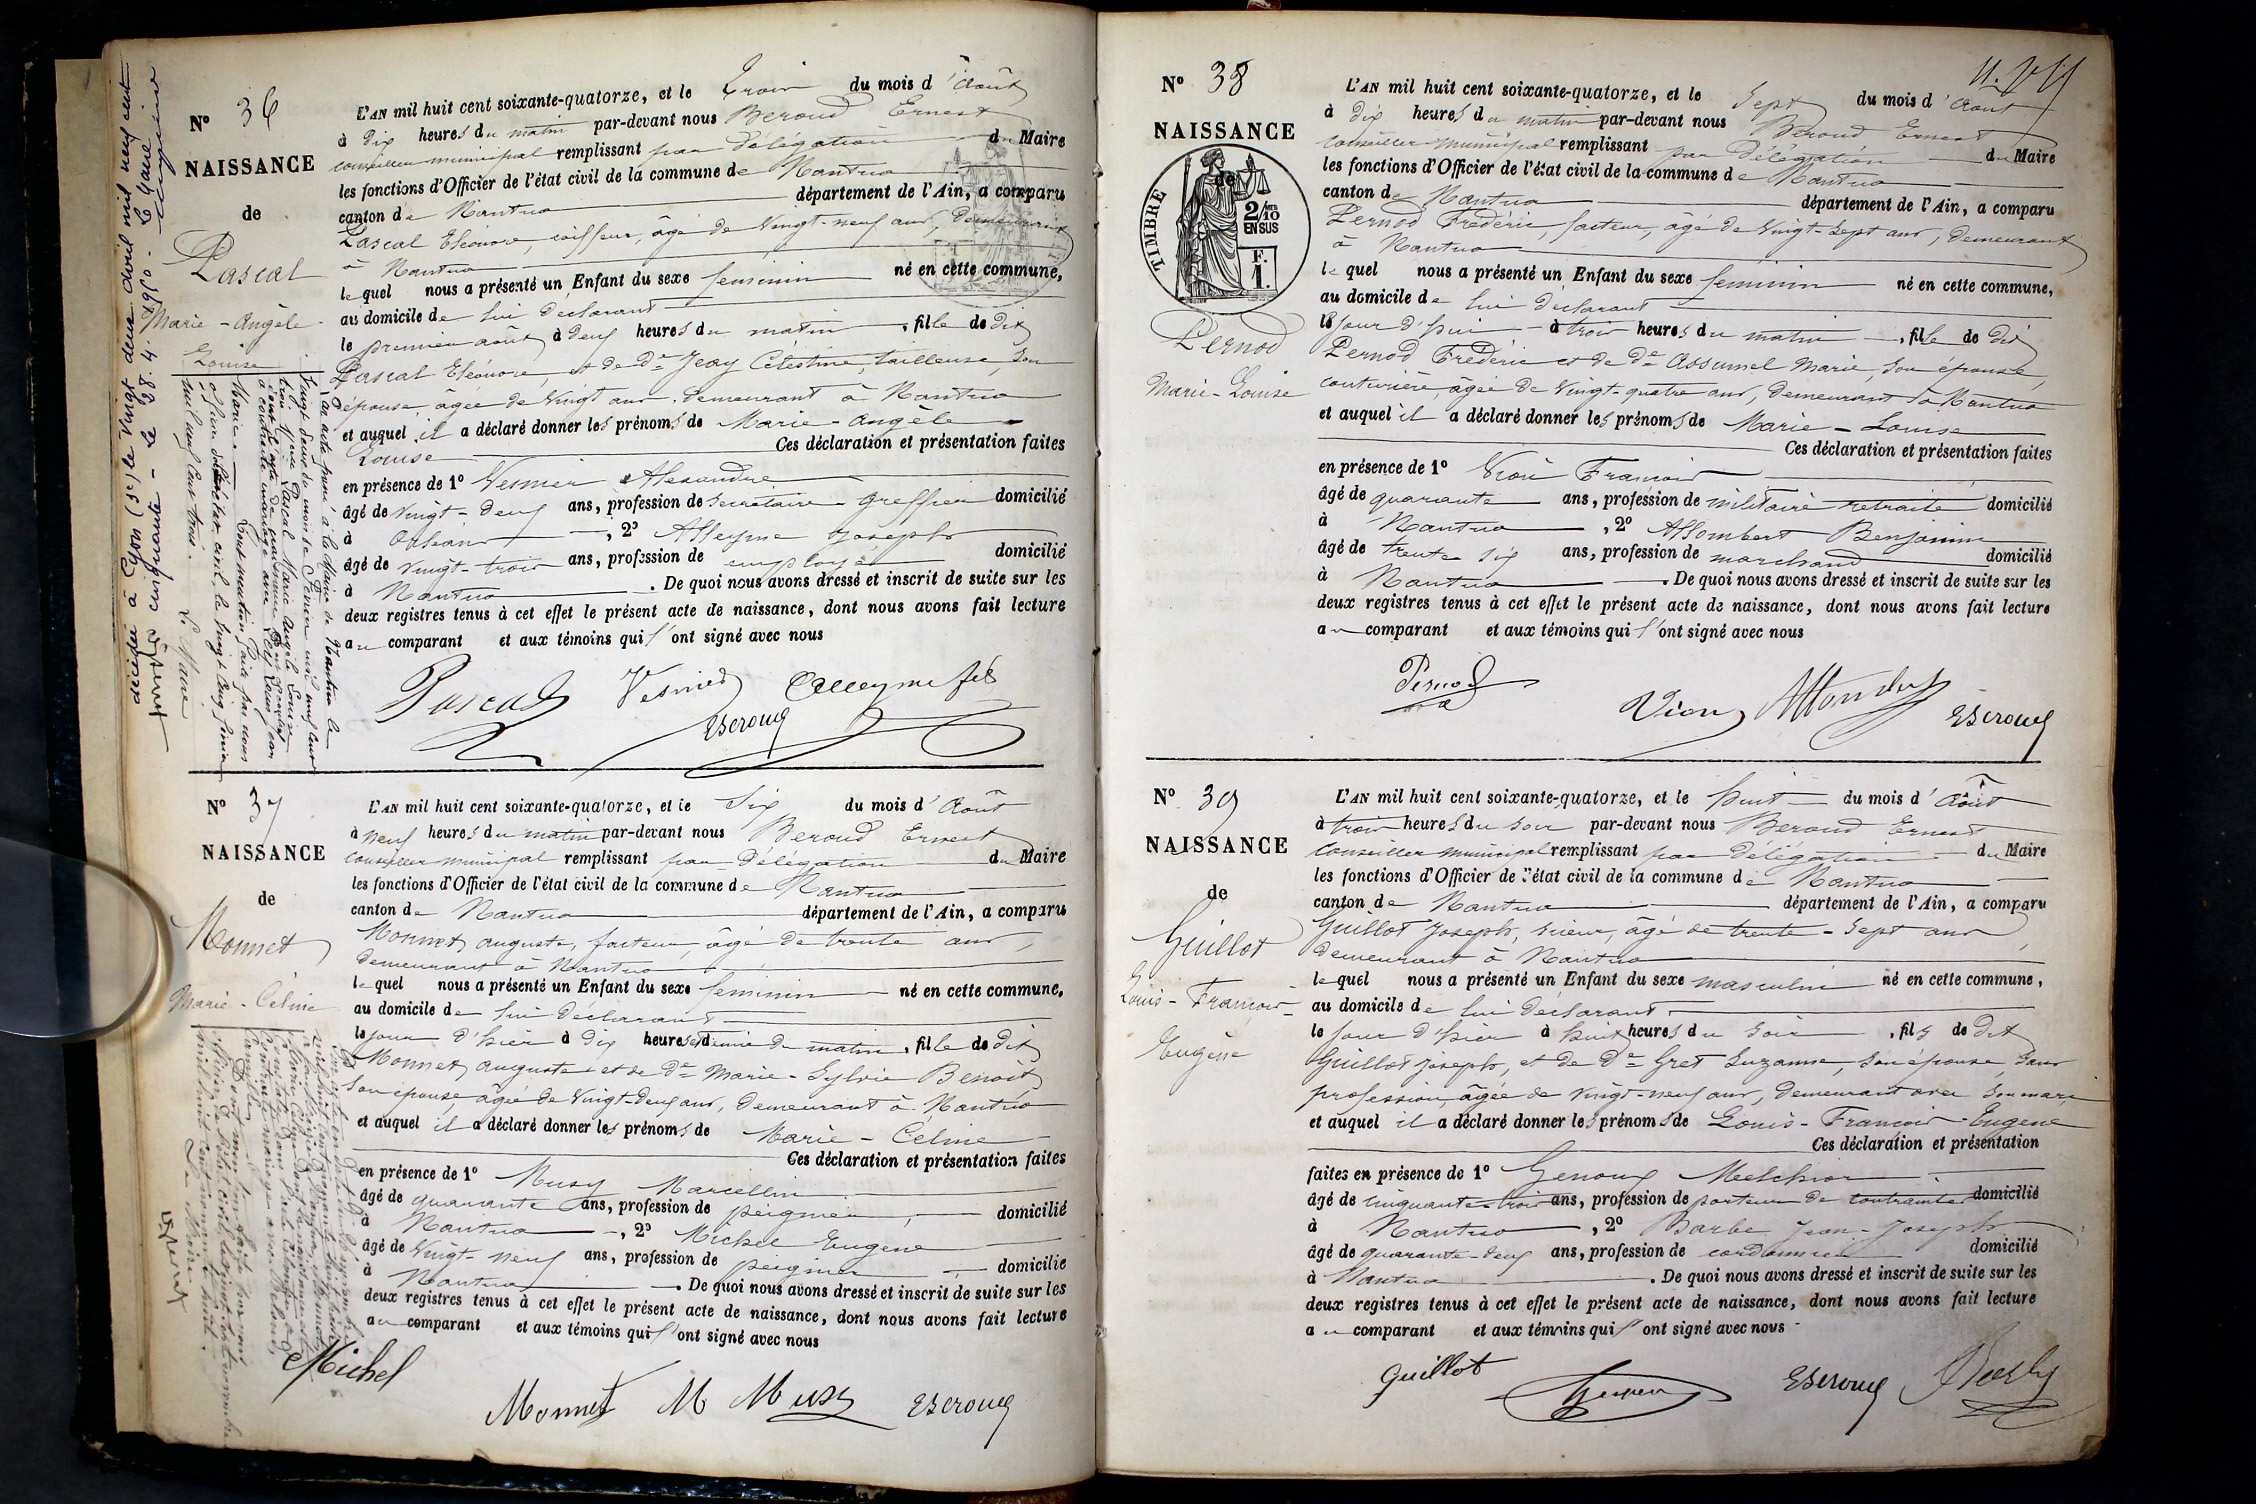 N° 36
NAISSANCE
de
Pascal
Marie - Angèle
Louise
L'AN mil huit cent soixante-quatorze, et le Trois du mois d'Août
à dix heures du matin par-devant nous Beroud Ernest
conseiller municipal remplissant par délégation du Maire
les fonctions d'Officier de l'état civil de la commune de Nantua
canton de Nantua département de l'Ain, a comparu
Pascal Eléonore, coiffeur, âgé de Vingt-neuf ans, demeurant
à Nantua
lequel nous a présenté un Enfant du sexe féminin né en cette commune,
au domicile de lui déclarant
le premier août à deux heures du matin, fille de dit
Pascal Eléonore, et de De Jeay Célestine, tailleuse, son
épouse, agée de vingt ans, demeurant à Nantua
et auquel il a déclaré donner les prénoms de Marie-Angèle
Louise Ces déclaration et présentation faites
en présence de 1° Vesnier Alexandre
âgé de vingt-deux ans, profession de secrétaire-greffier domicilié
à , 2° Alleyme Joseph
âgé de vingt-trois ans, profession de employé domicilié
à Nantua. De quoi nous avons dressé et inscrit de suite sur les
deux registres tenus à cet effet le présent acte de naissance, dont nous avons fait lecture
au comparant et aux témoins qui l'ont signé avec nous
Pascal Vesnier Alleyme fils
EBeroud
décédée à Lyon (3e) le Vingt deux avril mil neuf cent
cinquante - le 28.4.1950. Le Maire
Par acte passé à la Mairie de Nantua le
N° 37
NAISSANCE
de
Monnet
Marie - Céline
L'AN mil huit cent soixante-quatorze, et le Six du mois d'Août
à neuf heures du matin par-devant nous Beroud Ernest
conseiller municipal remplissant par Délégation du Maire
les fonctions d'Officier de l'état civil de la commune de Nantua
canton de Nantua département de l'Ain, a comparu
Monnet auguste, facteur, âgé de trente ans,
demeurant à Nantua
lequel nous a présenté un Enfant du sexe féminin né en cette commune,
au domicile de lui déclarant
le jour d'hier à dix heures et demie du matin, fille de dit
Monnet auguste et de De Marie-Sylvie Benoit
son épouse, âgée de Vingt-deux ans, demeurant à Nantua
et auquel il a déclaré donner les prénoms de Marie - Céline
Ces déclaration et présentation faites
en présence de 1° Musy Marcellin
âgé de quarante ans, profession de peignier, domicilié
à Nantua, 2° Michel Eugène
âgé de Vingt-neuf ans, profession de peignier domicilié
à Nantua. De quoi nous avons dressé et inscrit de suite sur les
deux registres tenus à cet effet le présent acte de naissance, dont nous avons fait lecture
au comparant et aux témoins qui l'ont signé avec nous
Michel
Monnet M Musy EBeroud
N° 38
NAISSANCE
de
TIMBRE
2/10 EN SUS
F. 1.
Pernod
Marie-Louise
L'AN mil huit cent soixante-quatorze, et le Sept du mois d'Août
à dix heures du matin par-devant nous Beroud Ernest
conseiller municipal remplissant par Délégation du Maire
les fonctions d'Officier de l'état civil de la commune de Nantua
canton de Nantua département de l'Ain, a comparu
Pernod Frédéric, facteur, âgé de Vingt-Sept ans, demeurant
à Nantua
lequel nous a présenté un Enfant du sexe féminin né en cette commune,
au domicile de lui déclarant
le jour d'hui à trois heures du matin, fille de dit
Pernod Frédéric et de De Assumel Marie, son épouse,
couturière, âgée de Vingt-quatre ans, demeurant à Nantua
et auquel il a déclaré donner les prénoms de Marie - Louise
Ces déclaration et présentation faites
en présence de 1° François
âgé de quarante ans, profession de militaire retraité domicilié
à Nantua, 2° Allombert Benjamin
âgé de trente six ans, profession de marchand domicilié
à Nantua. De quoi nous avons dressé et inscrit de suite sur les
deux registres tenus à cet effet le présent acte de naissance, dont nous avons fait lecture
au comparant et aux témoins qui l'ont signé avec nous
Pernod
EBeroud
N° 39
NAISSANCE
de
Guillot
Louis - François
Eugène
L'AN mil huit cent soixante-quatorze, et le huit du mois d'Août
à trois heures du soir par-devant nous Beroud Ernest
conseiller municipal remplissant par délégation du Maire
les fonctions d'Officier de l'état civil de la commune de Nantua
canton de Nantua département de l'Ain, a comparu
Guillot Joseph, scieur, âgé de trente-sept ans
demeurant à Nantua
lequel nous a présenté un Enfant du sexe masculin né en cette commune,
au domicile de lui déclarant
le jour d'hier à huit heures du soir, fils de dit
Guillot Joseph, et de De Gret Suzanne, son épouse, sans
profession, âgée de vingt-neuf ans, demeurant avec son mari
et auquel il a déclaré donner les prénoms de Louis-François-Eugène
Ces déclaration et présentation
faites en présence de 1° Genoux Melchior
âgé de cinquante-trois ans, profession de porteur de contraintes domicilié
à Nantua, 2° Barbe Jean-Joseph
âgé de quarante-deux ans, profession de cordonnier domicilié
à Nantua. De quoi nous avons dressé et inscrit de suite sur les
deux registres tenus à cet effet le présent acte de naissance, dont nous avons fait lecture
au comparant et aux témoins qui l'ont signé avec nous
Guillot EBeroud